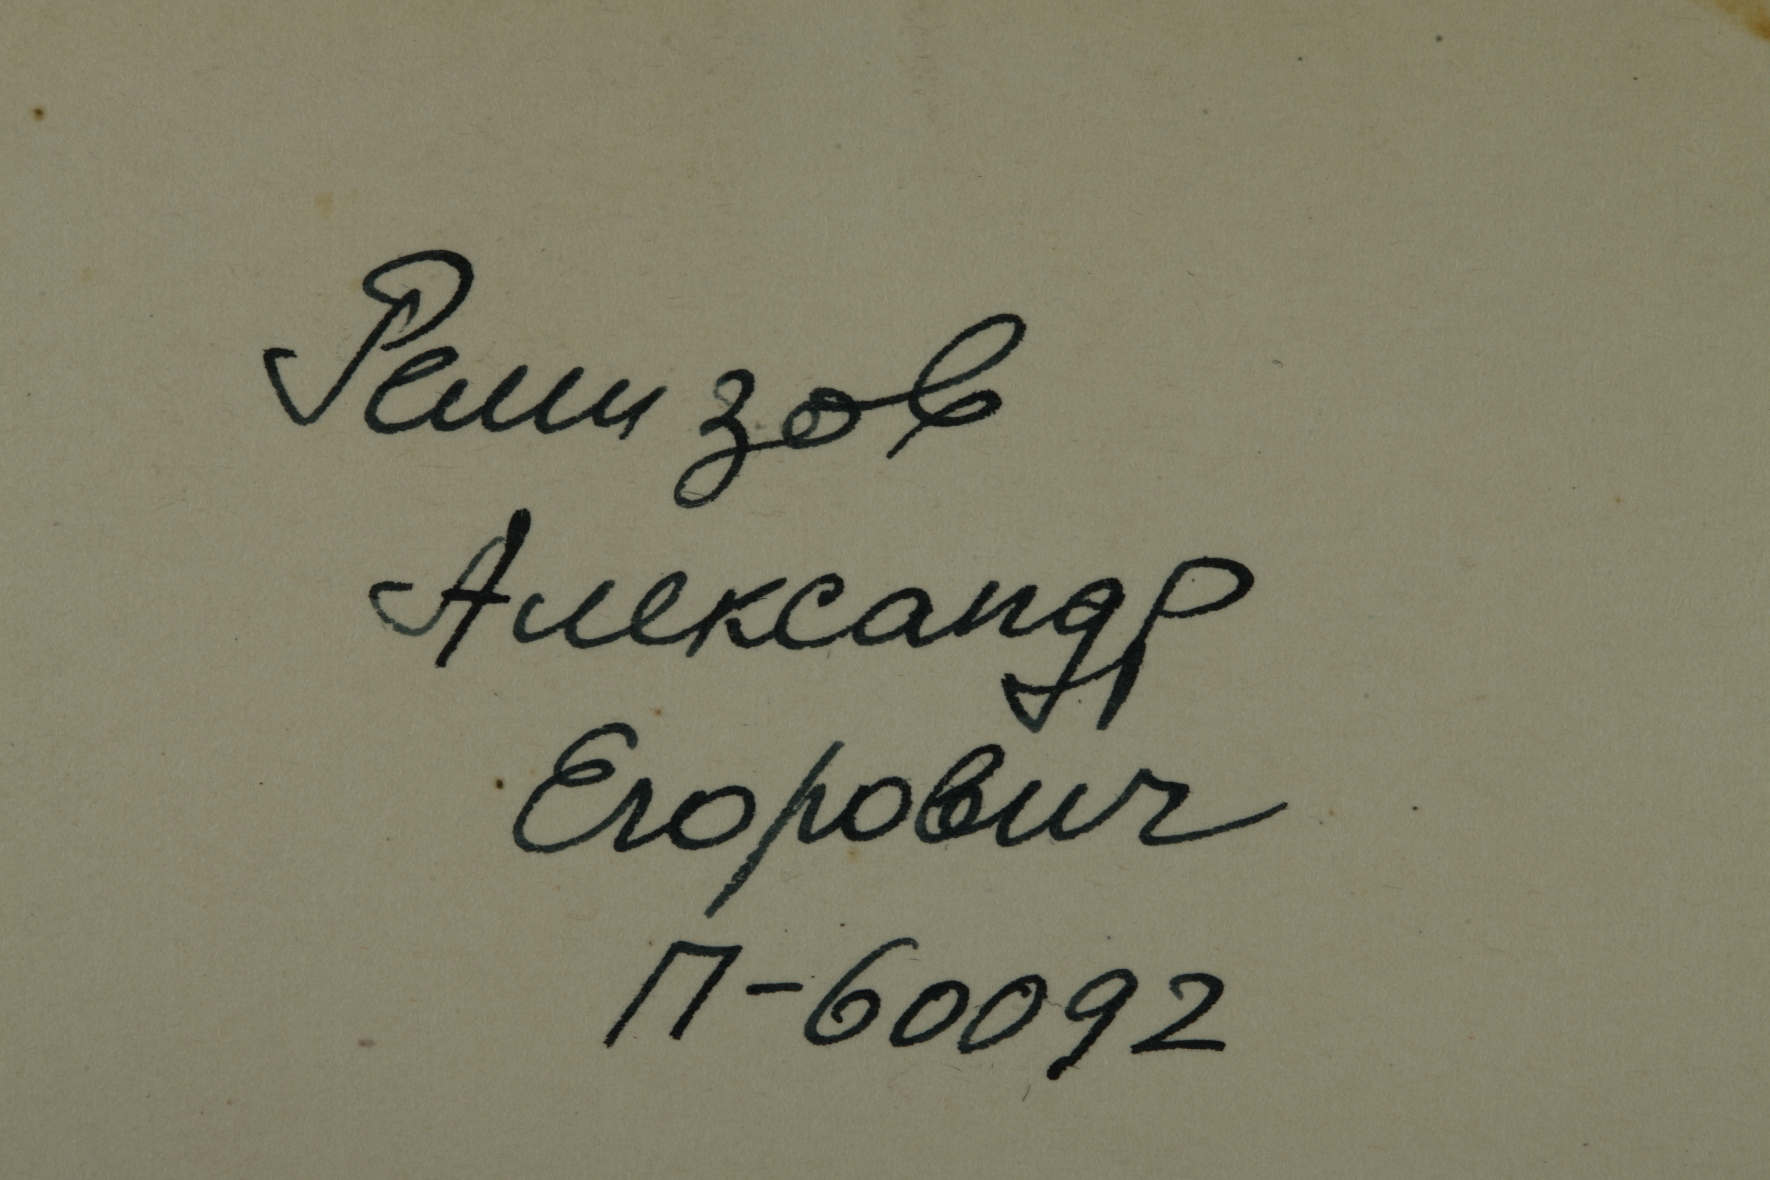 Ремизов
Александр
Егорович
П-60092